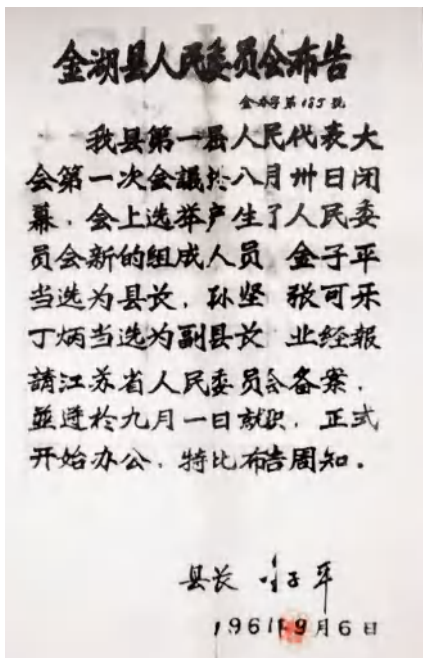 金湖县人民委员会布告
金办字第185號
我县第一届人民代表大
会第一次会議於八月卅日闭
幕，会上选举产生了人民委
员会新的组成人员 金子平
当选为县长，孙坚 张可乐
丁炳当选为副县长 业经報
請江苏省人民委员会备案，
並进於九月一日就职，正式
开始办公，特比布告周知。
县长 金子平
1961年9月6日